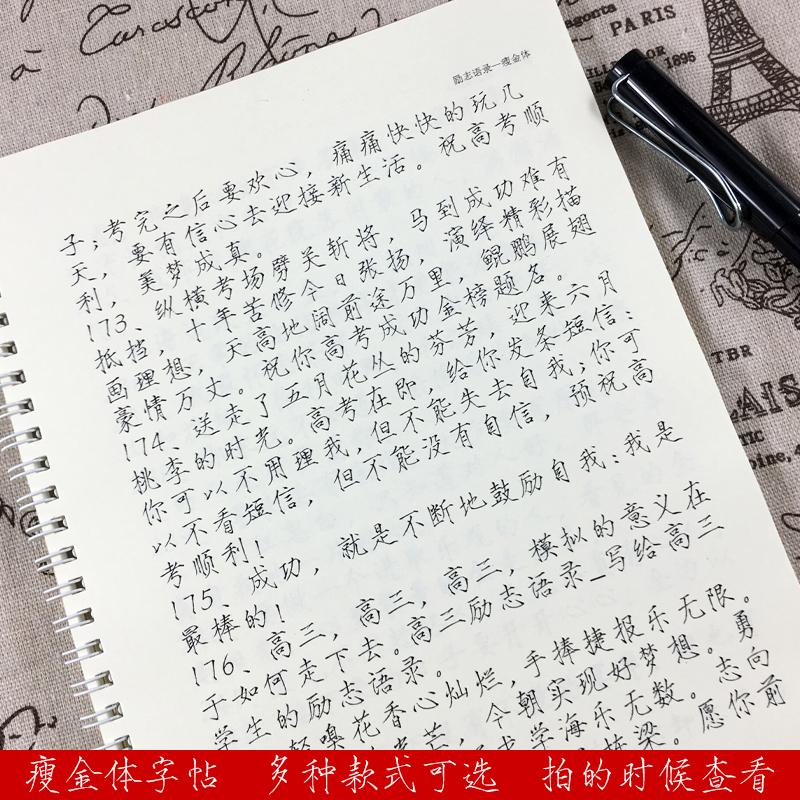 PARIS
1895
励志语录—瘦金体
子；考完之后要欢心，痛痛快快的玩几
天，要有信心去迎接新生活。祝高考顺
利，美梦成真。
173、纵横考场劈关斩将，马到成功难有
抵挡，十年苦修今日张扬，演绎精彩描
画理想，天高地阔前途万里，鲲鹏展翅
豪情万丈。祝你高考成功金榜题名。
174、送走了五月花丛的芬芳，迎来六月
桃李的时光。高考在即，给你发条短信：
你可以不用理我，但不能失去自我；你可
以不看短信，但不能没有自信，预祝高
考顺利！
175、成功，就是不断地鼓励自我：我是
最棒的！
176、高三，高三，高三，模拟的意义在
于如何走下去。高三励志语录_写给高三
学生的励志语录。
轻嗅花香心灿烂，手捧捷报乐无限。
芒，今朝实现好梦想。勇
学海乐无数。志向
梁。愿你前
TBR
瘦金体字帖 多种款式可选 拍的时候查看